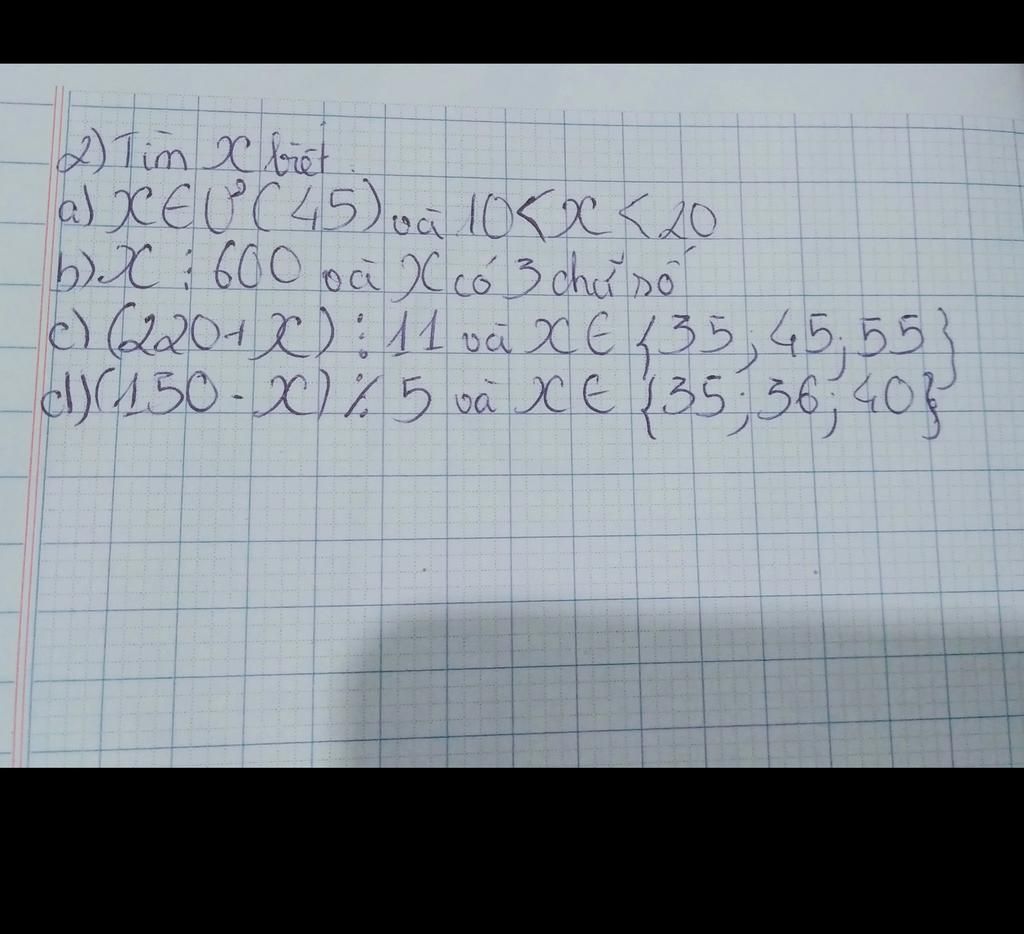 2) Tìm x biết.
a) x ∈ Ư(45) và 10 < x < 20
b) x ⋮ 600 và x có 3 chữ số
c) (220 + x) ⋮ 11 và x ∈ {35; 45; 55}
d) (150 - x) ⋮̸ 5 và x ∈ {35; 36; 40}